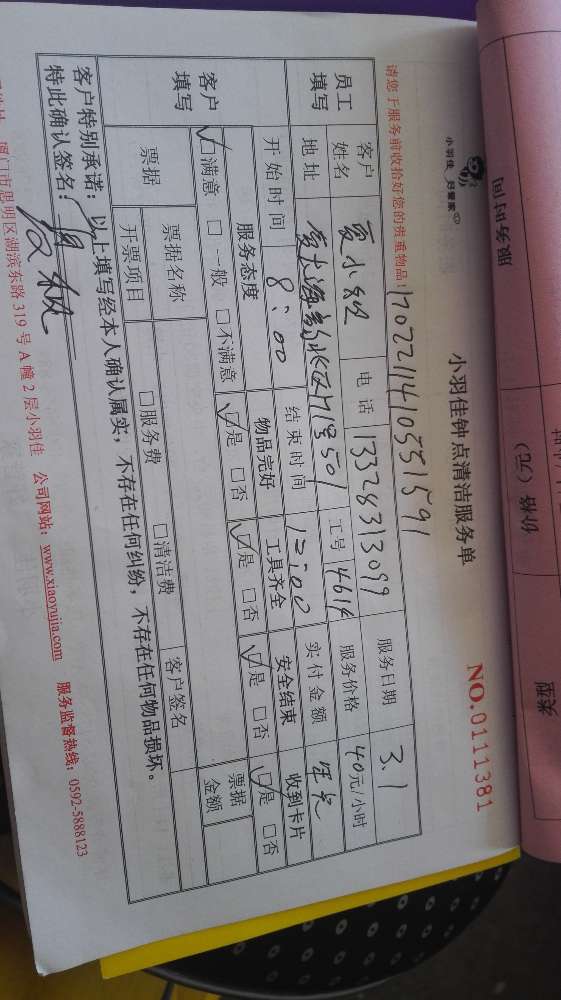 服务时间
价格（元）
小羽佳 好管家
小羽佳钟点清洁服务单
NO.0111381
请您于服务前收拾好您的贵重物品！
17022114105515 91
员工填写
客户姓名 夏小姐 电话 13328313099 服务日期 3.1
地址 501 工号 4614 服务价格 40元/小时
开始时间 8:00 结束时间 12:00 实付金额
客户填写
服务态度 物品完好 工具齐全 安全结束 收到卡片
☑满意 □一般 □不满意 ☑是 □否 ☑是 □否 ☑是 □否 ☑是 □否
票据 票据名称 票据金额
开票项目 □服务费 □清洁费 客户签名
客户特别承诺：以上填写经本人确认属实，不存在任何纠纷，不存在任何物品损坏。
特此确认签名：
厦门市思明区湖滨东路 319 号 A 幢 2 层小羽佳 公司网站：www.xiaoyujia.com 服务监督热线：0592-5888123